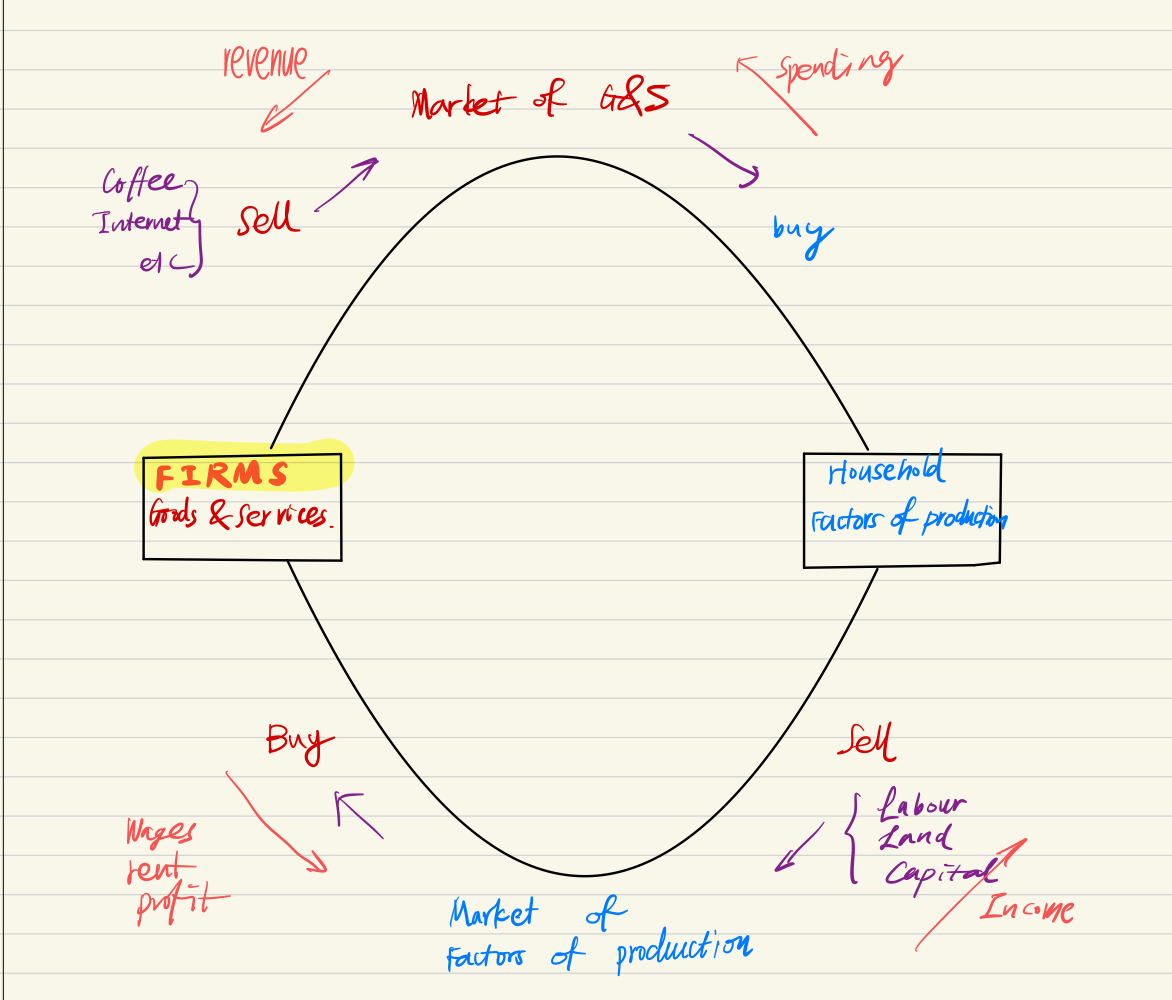 revenue
Spending
Market of G&S
Coffee
Internet
etc
Sell
buy
FIRMS
Goods & Services.
Household
Factors of production
Buy
Sell
Labour
Land
Capital
Wages
rent
profit
Income
Market of
Factors of production